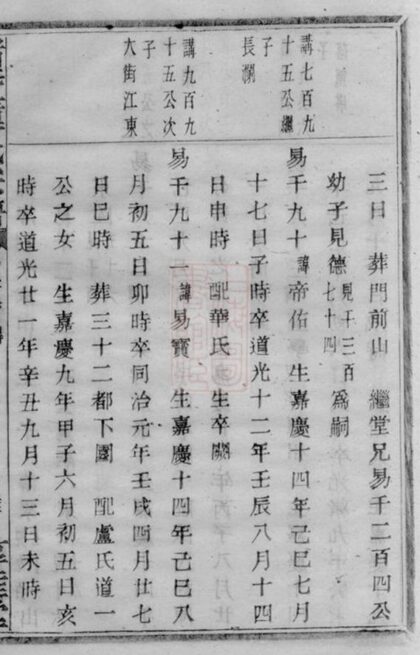 三日　葬門前山　繼堂兄易千二百四公
幼子見德見千三百七十四為嗣
講七百九
十五公繼
子
長瀾
易千九十諱帝佑　生嘉慶十四年己巳七月
十七日子時卒道光十二年壬辰八月十四
日申時　配華氏　生卒闕
講九百九
十五公次
子
大街江東
易千九十一諱易寶　生嘉慶十四年己巳八
月初五日卯時卒同治元年壬戌四月廿七
日巳時　葬三十二都下園　配盧氏道一
公之女　生嘉慶九年甲子六月初五日亥
時卒道光廿一年辛丑九月十三日未時